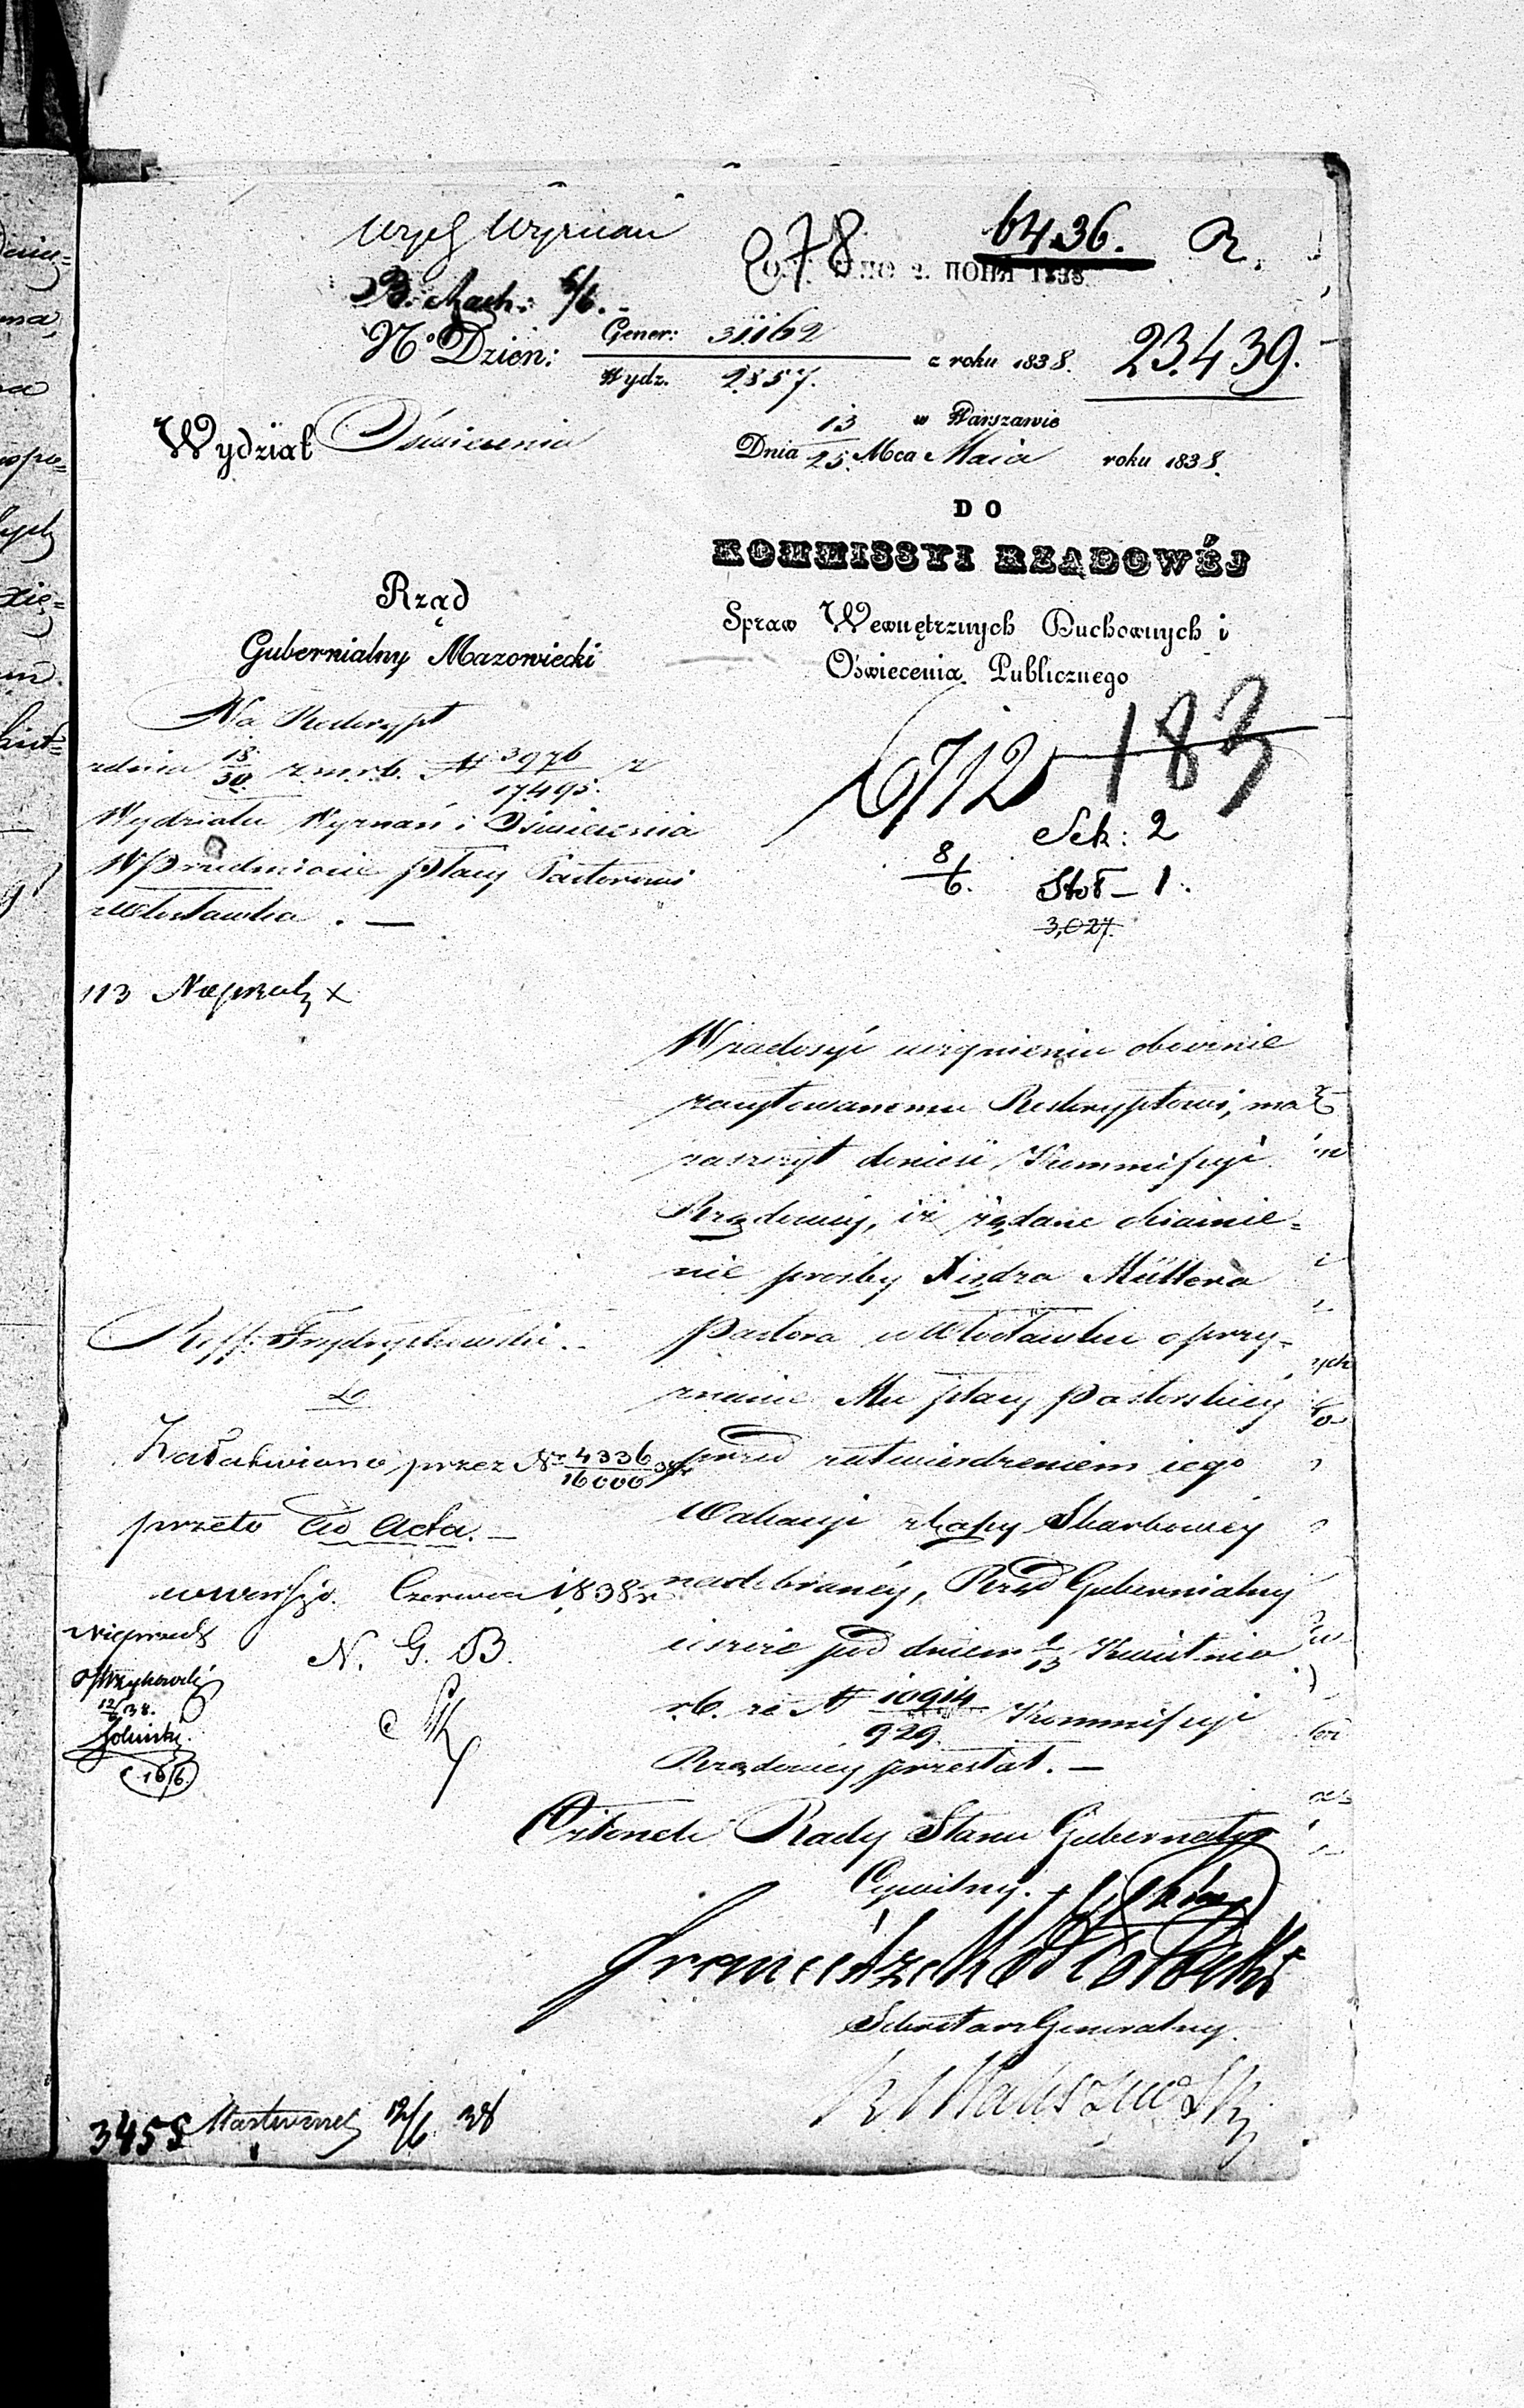 Wydz Wyznań
278
6436.
R.
2. ІЮНЯ 1838
B. Rach: 6/6.
No. Dzien: Gener: 31162
Wydz. 2857.
z roku 1838.
23.439.
Wydział Oświecenia
w Warszawie
Dnia 13/25. Mca Maia roku 1838.
DO
KOMMISSYI RZĄDOWÉJ
Spraw Wewnętrznych Duchownych i
Oświecenia Publicznego
Rząd
Gubernialny Mazowiecki
Na Reskrypt
zdnia 18/30. z.m.r.b. N 3976/17495. z
Wydziału Wyznań i Oświecenia
W Przedmiocie płacy Pastorowi
zWłocławka. —
6712
183
8/6.
Sek: 2
Stół – 1.
3,027.
113 Nieprzeck x
W zadosyć uczynieniu obocznie
zacytowanemu Reskryptowi, ma
zaszczyt donieść Kommissyi
Rządowéy, iż żądane obiaśnie=
nie prośby Xiędza Müllera
Pastora w Włocławku o przy-
znanie Mu płacy Pastorskiey
przed zatwierdzeniem iego
Wokacyi z kassy Skarbowéy
nadebranéy, Rząd Gubernialny
ieszcze pod dniem 1/13 Kwietnia
r.b. za N 10914/929. Kommissyi
Rządowéy przesłał. —
Reff: Frydrychowski.
Załatwiono przez Nr 4336/16000 38r
przeto ad Acta. —
w Warsz. d. Czerwca 1838 r.
N. G. B.
12/6 38.
16/6.
Członek Rady Stanu Gubernator
Cywilny.
Franciszek
Sekretarz Generalny.
3458
12/6 38